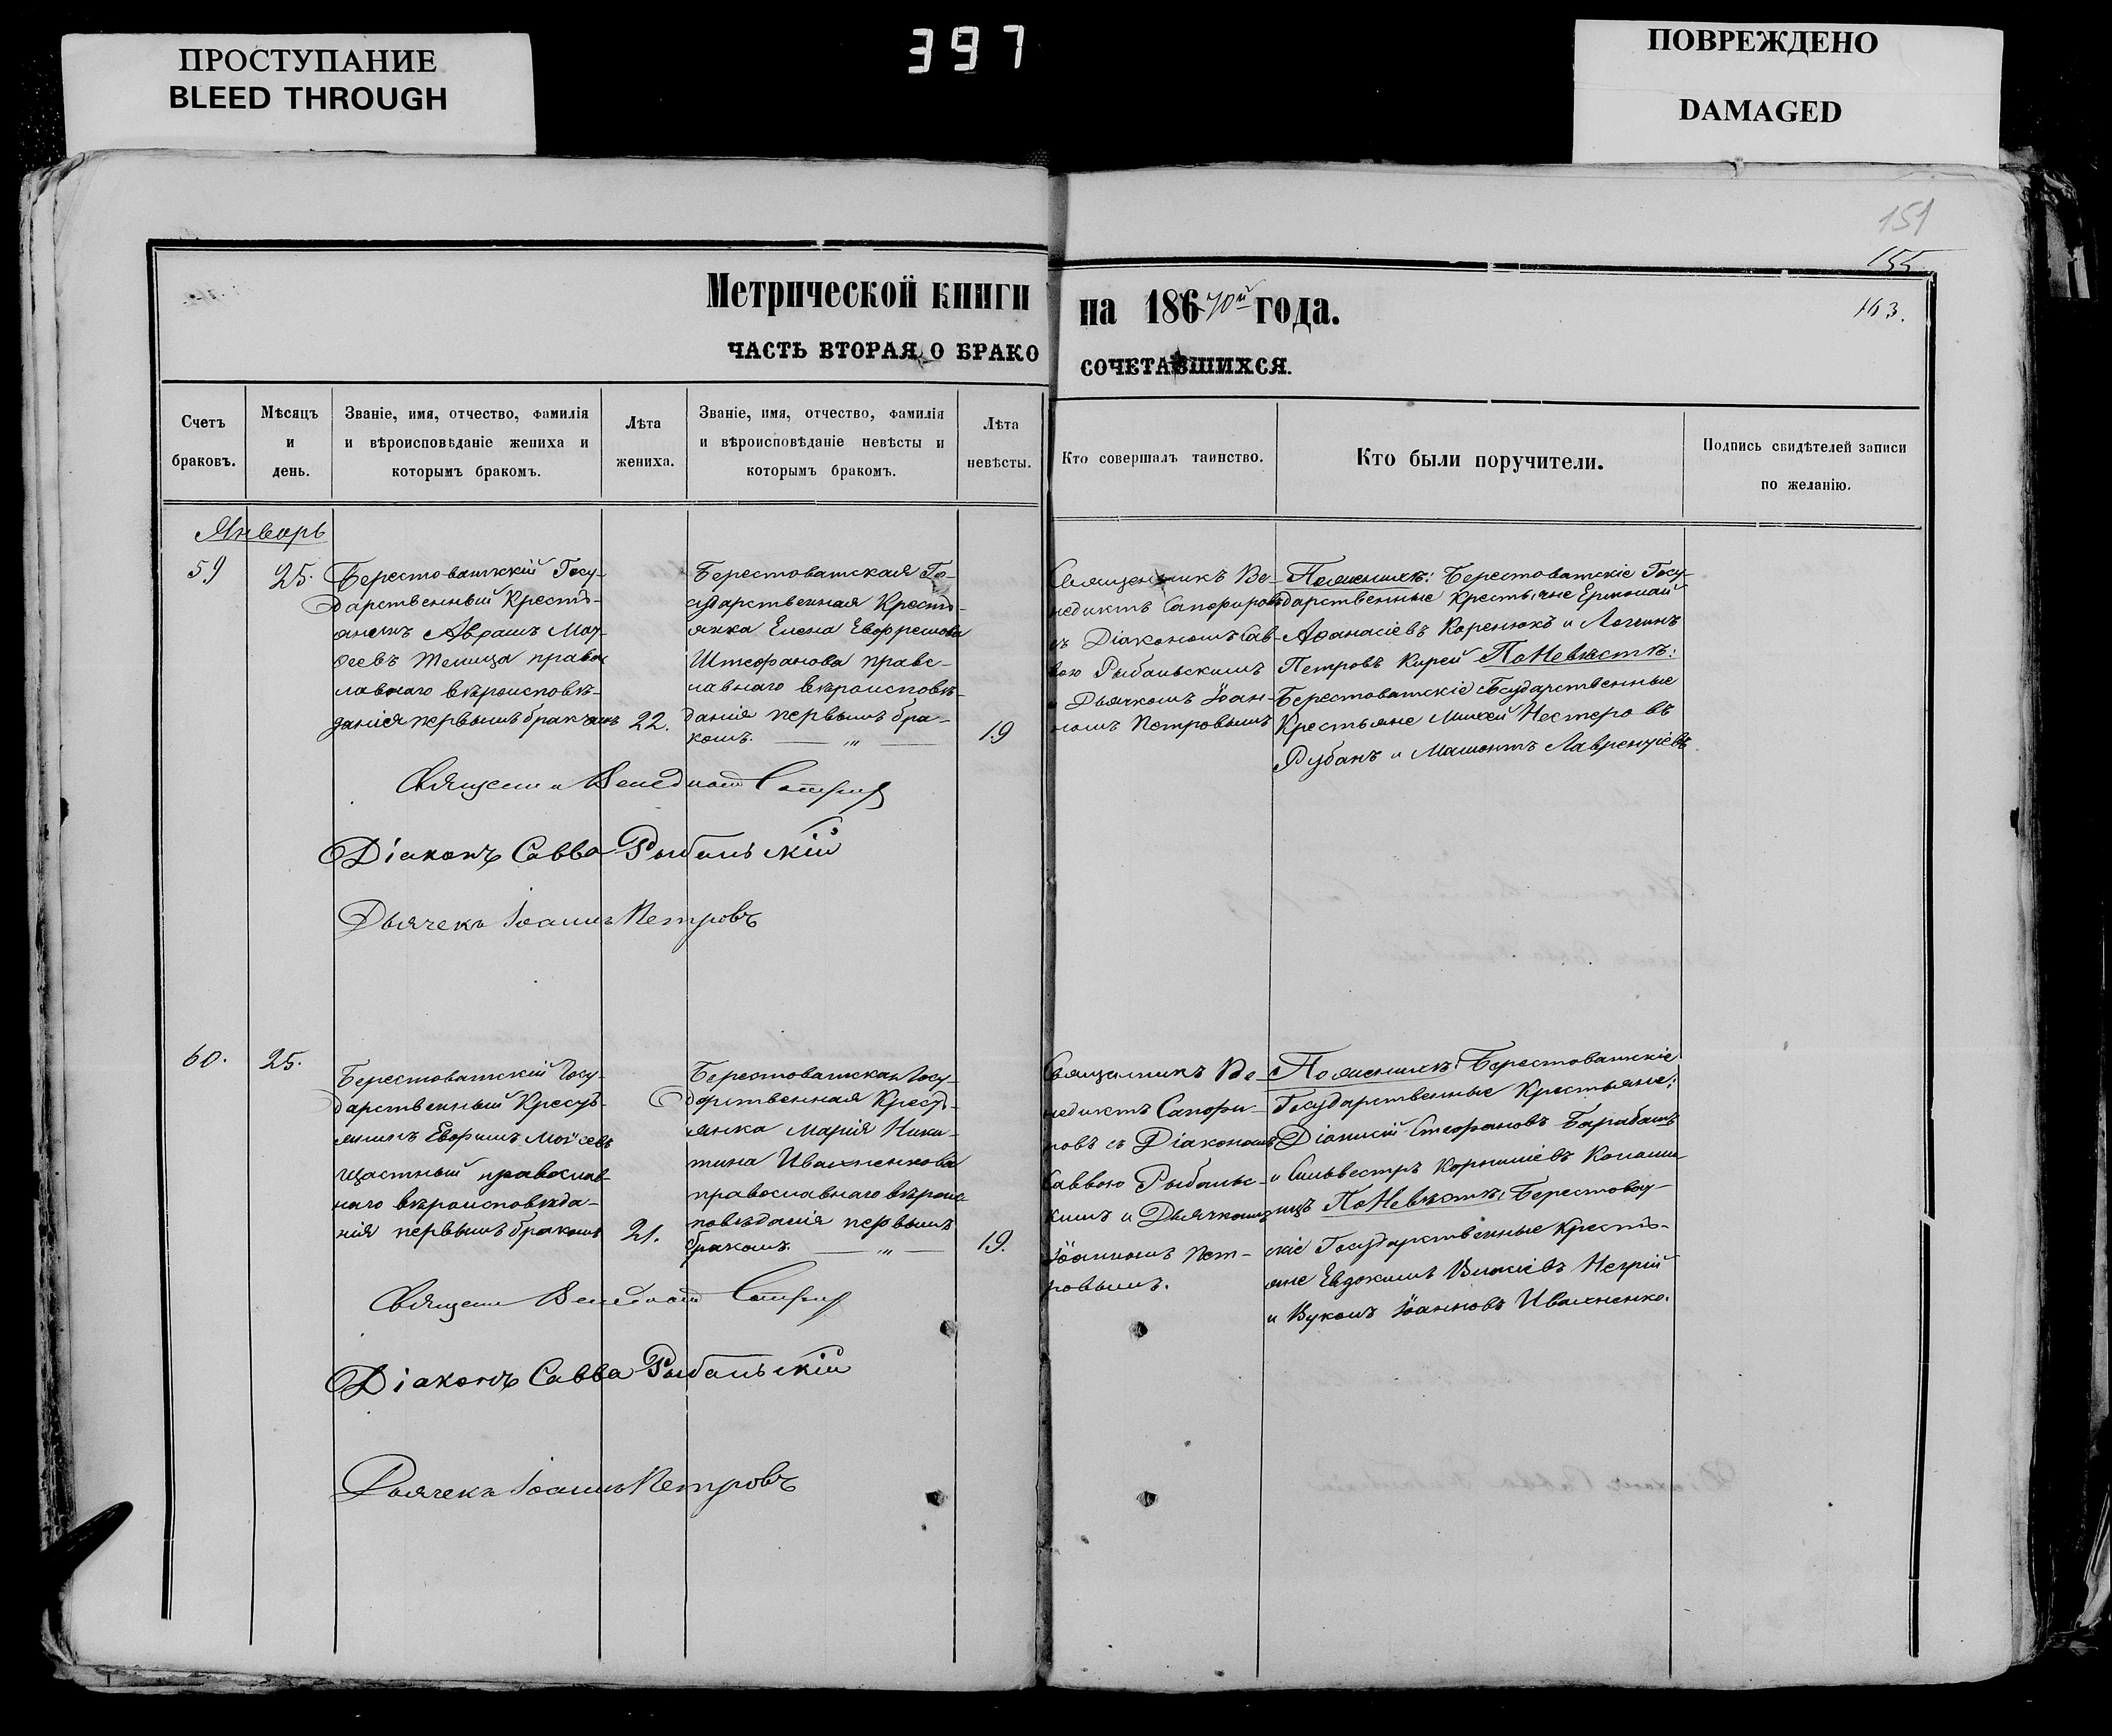 ПРОСТУПАНИЕ
BLEED THROUGH
397
ПОВРЕЖДЕНО
DAMAGED
151
155
163.
Метрической книги на 186 70й года.
ЧАСТЬ ВТОРАЯ, О БРАКОСОЧЕТАВШИХСЯ.
Счетъ
браковъ.
Мѣсяцъ
и
день.
Званіе, имя, отчество, фамилія
и вѣроисповѣданіе жениха и
которымъ бракомъ.
Лѣта
жениха.
Званіе, имя, отчество, фамилія
и вѣроисповѣданіе невѣсты и
которымъ бракомъ.
Лѣта
невѣсты.
Кто совершалъ таинство.
Кто были поручители.
Подпись свидѣтелей записи
по желанію.
Январь
59
25.
Берестоватскій Госу-
дарственный Кресть-
янинъ Авраамъ
православнаго вѣроисповѣ-
данія первымъ бракомъ
22.
Берестоватская Го-
сударственная Кресть-
янка Елена
Штефанова правс-
лавнаго вѣроисповѣ-
данія первымъ бра-
комъ.
19
Священникъ Ве-
недиктъ Сапфировъ
съ Діакономъ Сав-
вою Рыбальскимъ
и Дьячкомъ Іоан-
номъ Петровымъ
По женихѣ: Берестоватскіе Госу-
дарственные Крестьяне Ермолай
Афанасіевъ Коренюкъ и Логгинъ
Петровъ Кирей По Невѣстѣ:
Берестоватскіе Государственные
Крестьяне Михей Нестеровъ
Рубанъ и Мамонтъ Лаврентіевъ
Священ Венедиктъ
Діаконъ Савва Рыбальскій
Дьячекъ Іоаннъ Петровъ
60.
25.
Берестоватскій Госу-
дарственный Кресть-
янинъ Ефимъ Моисеевъ
Щастный православ-
наго вѣроисповѣда-
нія первымъ бракомъ
21.
Берестоватская Госу-
дарственная Кресть-
янка Марія Ники-
тина Ивахненкова
православнаго вѣроис-
повѣданія первымъ
бракомъ.
19.
Священникъ Ве-
недиктъ Сапфи-
ровъ съ Діакономъ
Саввою Рыбальс-
кимъ и Дьячкомъ
Іоанномъ Пет-
ровымъ.
По женихѣ: Берестоватскіе
Государственные Крестьяне:
Діонисій Стефановъ Барабашъ
и Сильвестръ Корниліевъ
По Невѣстѣ: Берестоват-
скіе Государственные Кресть-
яне Евдокимъ Негрій
и Вуколъ Іоанновъ Ивахненко.
Священ Венедиктъ
Діаконъ Савва Рыбальскій
Дьячекъ Іоаннъ Петровъ